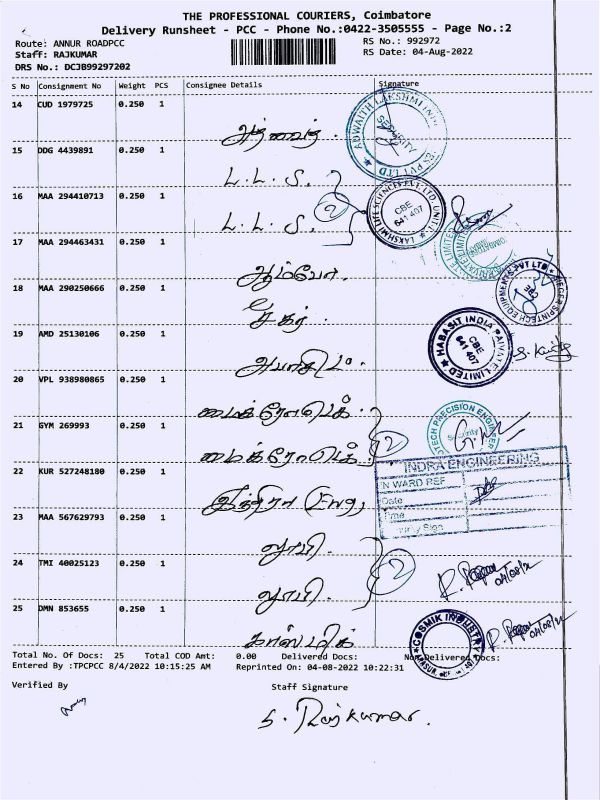 THE PROFESSIONAL COURIERS, Coimbatore
Delivery Runsheet - PCC - Phone No.:0422-3505555 - Page No.:2
Route: ANNUR ROADPCC
RS No.: 992972
Staff: RAJKUMAR
RS Date: 04-Aug-2022
DRS No.: DCJB99297202
S No Consignment No Weight PCS Consignee Details Signature
14 CUD 1979725 0.250 1
ADWAITH LAKSHMI
SECURITY
அத்வைத்
15 DDG 4439891 0.250 1
L.L.S,
2
16 MAA 294410713 0.250 1
LAKSHMI LIFE SCIENCES PVT. LTD. UNIT
CBE
641 407
L.L.S,
17 MAA 294463431 0.250 1
LIMITED
ஆம்போ.
18 MAA 290250666 0.250 1
SPINTECH EQUIPMENTS PVT LTD.
சுகர்.
19 AMD 25130106 0.250 1
HABASIT INDIA PRIVATE LIMITED
CBE
641 407
அபாசிட்.
20 VPL 938980865 0.250 1
மைக்ரோடெக்.
21 GYM 269993 0.250 1
TECH PRECISION ENGINEER
Security
2
மைக்ரோடெக்.
22 KUR 527248180 0.250 1
INDRA ENGINEERING
IN WARD REF
Date
Time
Security Sign
இந்திரா (Eng,
23 MAA 567629793 0.250 1
லூமி.
24 TMI 40025123 0.250 1
2
04/08/22
லூமி.
25 DMN 853655 0.250 1
COSMIK INDUSTRY
04/08/22
காஸ்மிக்
Total No. Of Docs: 25 Total COD Amt: 0.00 Delivered Docs: Non Delivered Docs:
Entered By :TPCPCC 8/4/2022 10:15:25 AM Reprinted On: 04-08-2022 10:22:31
Verified By
Staff Signature
S. Rajkumar.